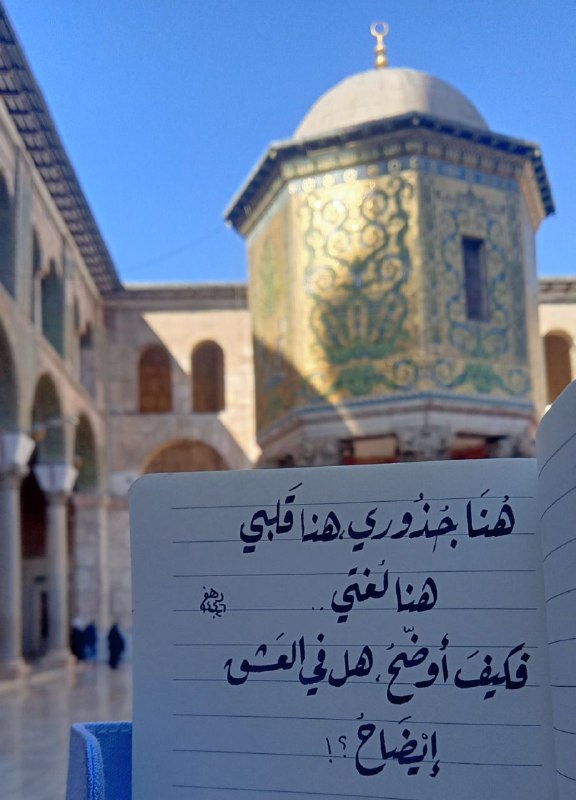 هُنَا جُذُوري، هنا قَلبي
هنا لُغتي..
فَكيفَ أُوضّحُ، هل في العَشق
إيْضَاحُ؟!